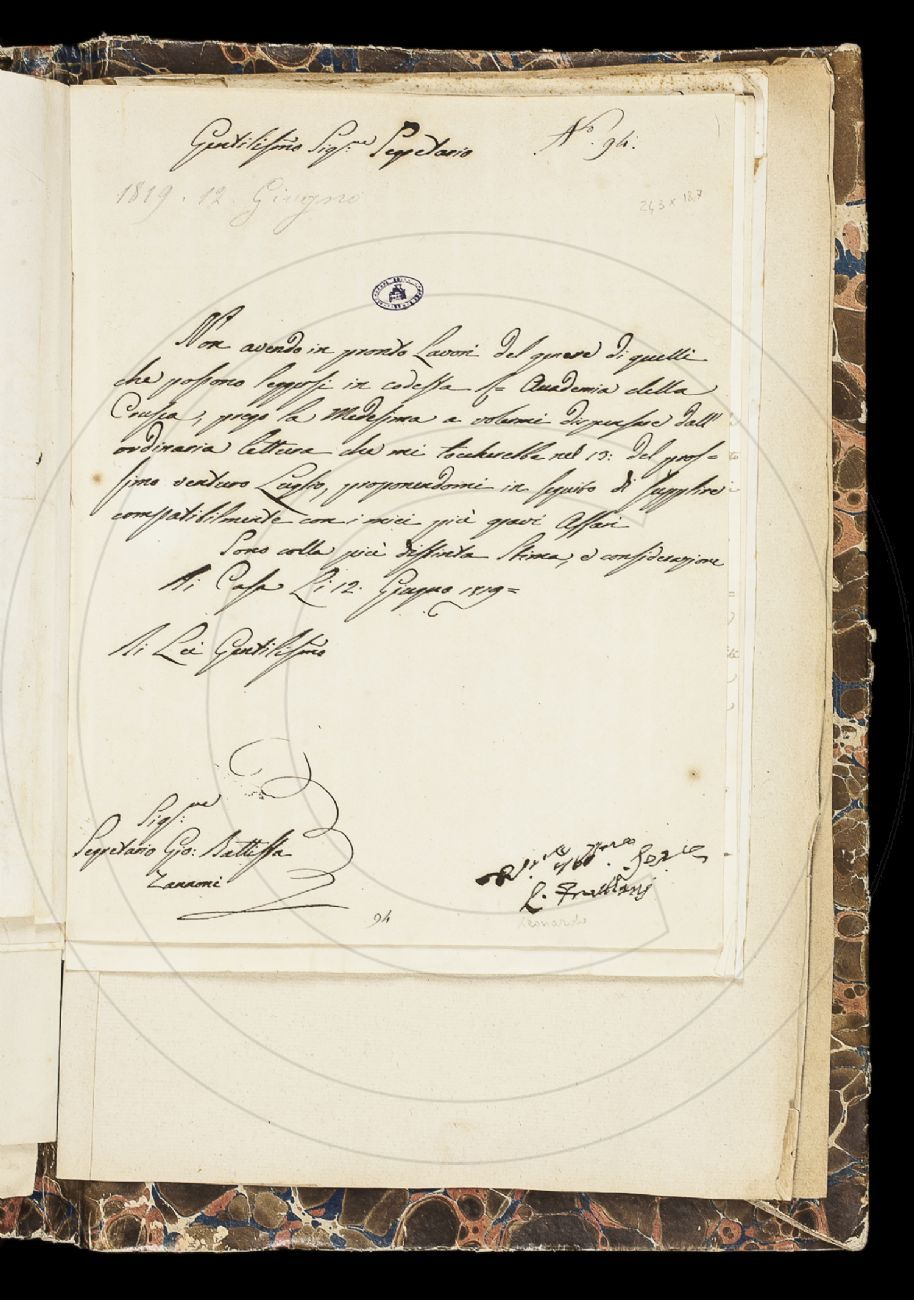 Gentilissmo Sigre. Segretario
No. 94.
1819. 12. Giugno
24,3 x 18,7
Non avendo in pronto Lavori del genere di quelli
che possono leggersi in codessta I= Accademia della
Crusca, prego la Medesima a volermi dispensare dall'
ordinaria lettura che mi toccherebbe nel 13: del pros=
simo venturo Luglio, proponendomi in seguito di supplire
compatibilmente con i miei più gravi Affari
Sono colla più distinta Stima, e considerazione
Di Casa Li 12. Giugno 1819=
Di Lei Gentilissmo
Sigre.
Segretario Gio: Battista
Zannoni
L. Frullani
Leonardo
94